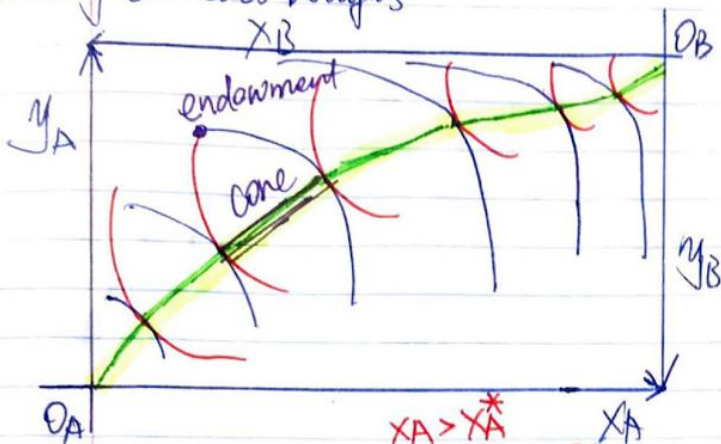 X_B
O_B
endowment
y_A
core
y_B
O_A
X_A > X_A^*
X_A